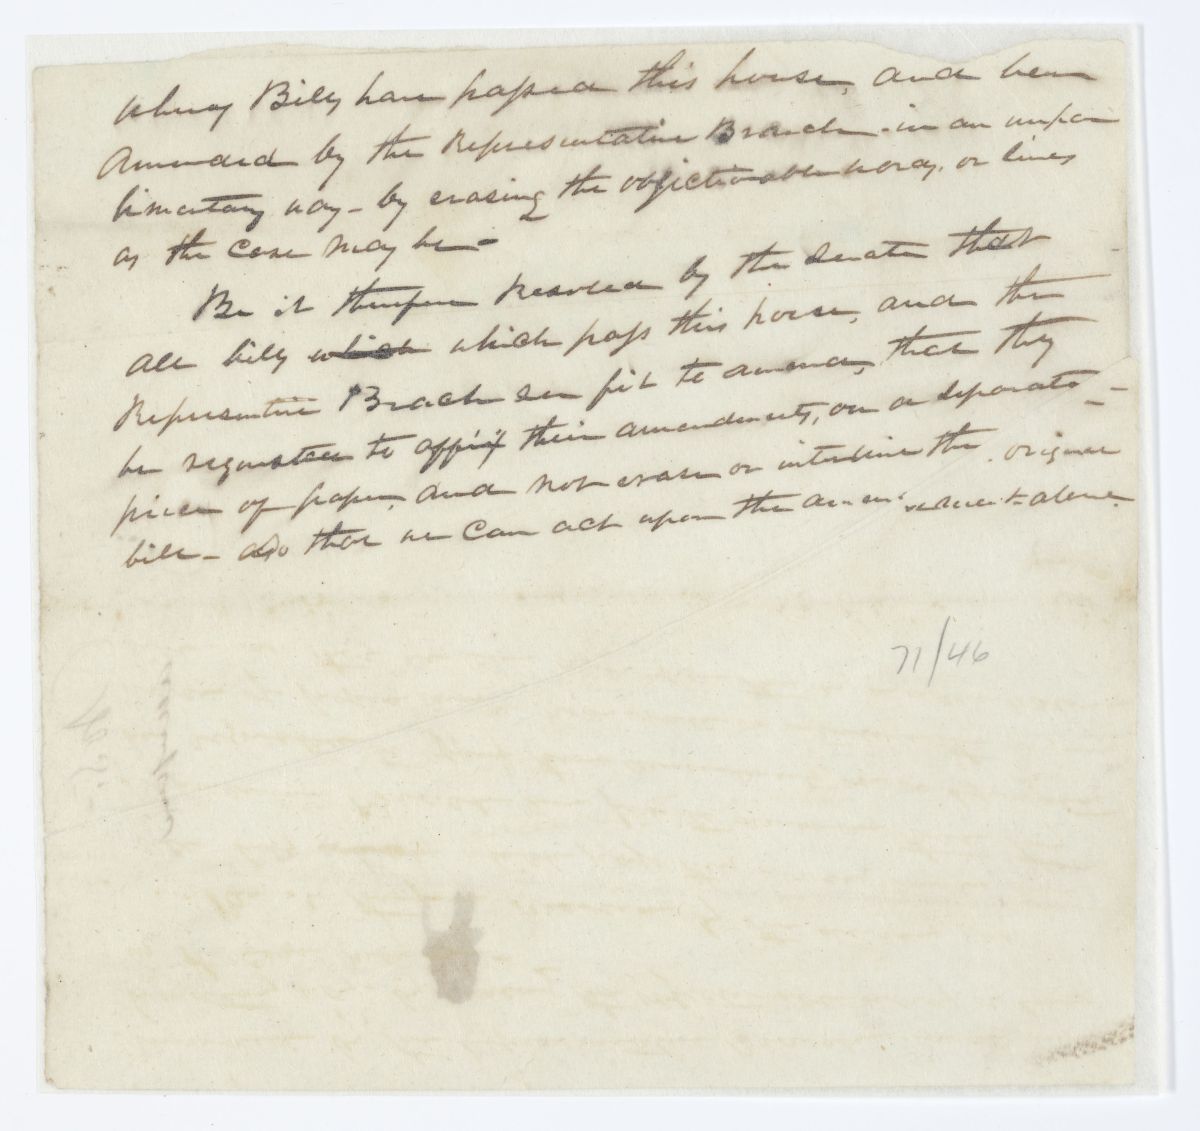 Whereas Bills have passed this house, and been
Amended by the Representative Branch - in an unpar
limentary way - by erasing the objectionable words, or lines
as the case may be -
Be it therefore Resolved by the Senate that
all bills which which pass this house, and the
Representive Brach see fit to amend, that they
be requested to affix their amendments, on a seperate
piece of paper, and not erase or interline the original
bill - so that we can act upon the amendment alone.
71/46